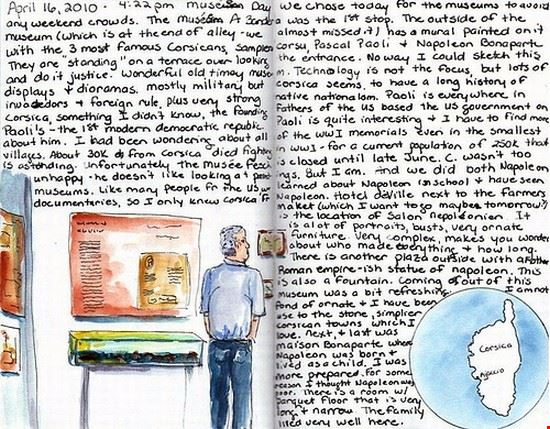 April 16, 2010 - 4:22 pm museum Day
any weekend crowds. The Museum A Bandera
museum (which is at the end of alley - we
with the 3 most famous Corsicans, Sampiero
They are "standing" on a terrace overlooking
and do it justice. Wonderful old timey muse
displays + dioramas. mostly military but
invaders + foreign rule, plus very strong
Corsica, something I didn't know, the founding
Paoli's - the 1st modern democratic republic
about him. I had been wondering about all
villages. About 30K from Corsica died fighting
is astounding. Unfortunately the musée Fesch
unhappy - he doesn't like looking at
museums. Like many people fr the US
documentaries, so I only knew Corsica fr
We chose today for the museums to avoid
a was the 1st stop. The outside of the
almost missed it) has a mural painted on it
corsu, Pascal Paoli + Napoleon Bonaparte
the entrance. No way I could sketch this
m. Technology is not the focus, but lots of
Corsica seems to have a long history of
native nationalism. Paoli is everywhere in
Fathers of the US based the US government on
Paoli is quite interesting + I have to find more
of the WWI memorials even in the smallest
in WWI - for a current population of 250K that
is closed until late June. C. wasn't too
ings. But I am. And we did both Napoleon
learned about Napoleon in school + have seen
Napoleon. Hotel deVille next to the farmers
market (which I want to go maybe tomorrow?)
is the location of Salon Napoleonien. It
is a lot of portraits, busts, very ornate
furniture. Very complex, makes you wonder
about who made everything + how long.
There is another plaza outside with another
Roman empire-ish statue of napoleon. This
is also a fountain. Coming out of this
museum was a bit refreshing. I am not
fond of ornate + I have been
use to the stone, simplier
corsican towns which I
love. Next, + last was
maison Bonaparte where
Napoleon was born +
lived as a child. I was
more prepared. For some
reason I thought Napoleon was
poor. There is a room w/
parquet floor that is very
long + narrow. The family
lived very well here.
Corsica
Ajaccio